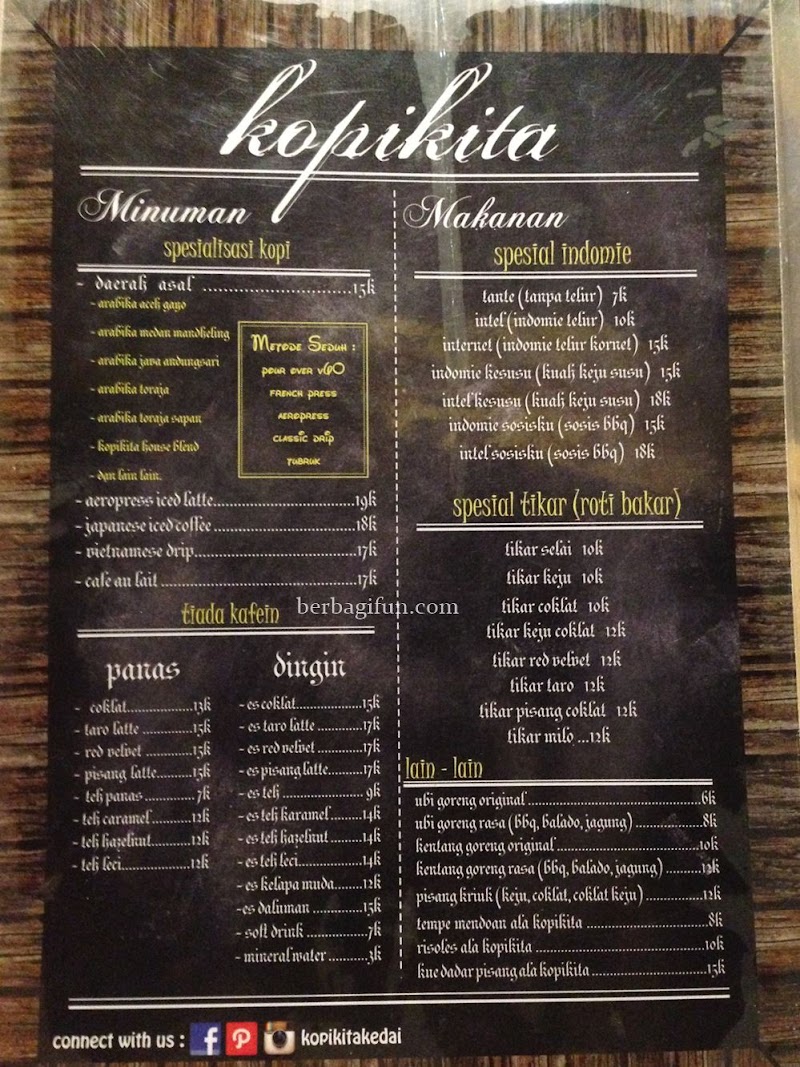 kopikita
Minuman
spesialisasi kopi
- daerah asal ............................15k
- arabika aceh gayo
- arabika medan mandheling
- arabika java andungsari
- arabika toraja
- arabika toraja sapan
- kopikita house blend
- dan lain lain.
Metode Seduh :
pour over v60
french press
aeropress
classic drip
tubruk
- aeropress iced latte..........................19k
- japanese iced coffee ..........................18k
- vietnamese drip..............................17k
- cafe au lait ....................................17k
tiada kafein
panas
- coklat....................13k
- taro latte ...............15k
- red velvet ...............15k
- pisang latte...........15k
- teh panas ...............7k
- teh caramel.............12k
- teh hazelnut............12k
- teh leci....................12k
dingin
- es coklat....................15k
- es taro latte ..............17k
- es red velvet ..............17k
- es pisang latte..........17k
- es teh ........................9k
- es teh karamel..........14k
- es teh hazelnut..........14k
- es teh leci..................14k
- es kelapa muda.........12k
-es daluman ...............15k
- soft drink ..................7k
- mineral water ............3k
Makanan
spesial indomie
tante (tanpa telur) 7k
intel (indomie telur) 10k
internet (indomie telur kornet) 15k
indomie kesusu (kuah keju susu) 15k
intel kesusu (kuah keju susu) 18k
indomie sosisku (sosis bbq) 15k
intel sosisku (sosis bbq) 18k
spesial tikar (roti bakar)
tikar selai 10k
tikar keju 10k
tikar coklat 10k
tikar keju coklat 12k
tikar red velvet 12k
tikar taro 12k
tikar pisang coklat 12k
tikar milo ...12k
lain - lain
ubi goreng original ........................................6k
ubi goreng rasa (bbq, balado, jagung) ................8k
kentang goreng original .................................10k
kentang goreng rasa (bbq, balado, jagung) .........12k
pisang krink (keju, coklat, coklat keju) ..............12k
tempe mendoan ala kopikita ............................8k
risoles ala kopikita .......................................10k
kue dadar pisang ala kopikita ..........................15k
berbagifun.com
connect with us : kopikitakedai